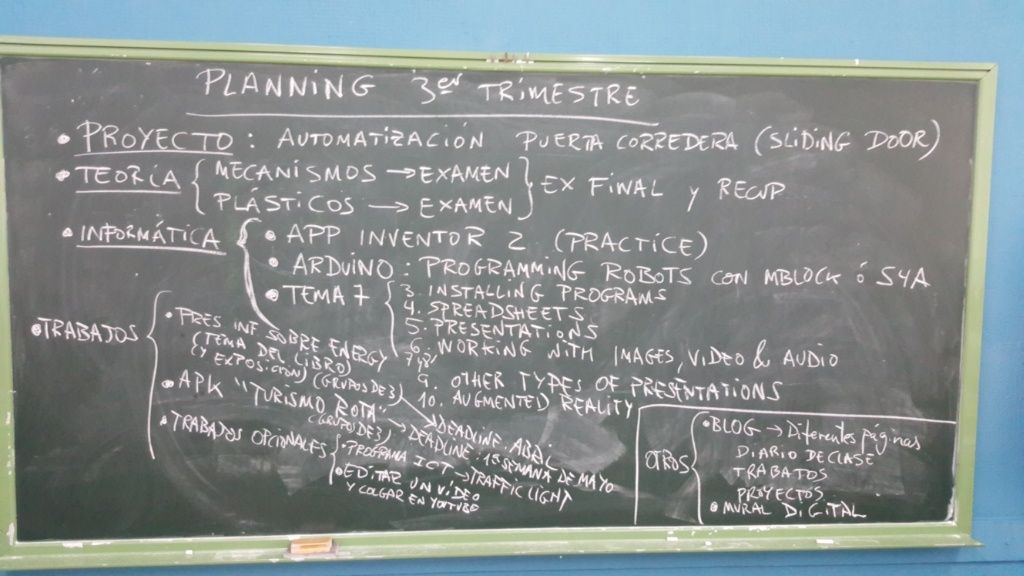 PLANNING 3er TRIMESTRE
• PROYECTO: AUTOMATIZACIÓN PUERTA CORREDERA (SLIDING DOOR)
• TEORÍA { MECANISMOS → EXAMEN } EX FINAL y RECUP
PLÁSTICOS → EXAMEN
• INFORMÁTICA { • APP INVENTOR 2 (PRACTICE)
• ARDUINO: PROGRAMMING ROBOTS CON MBLOCK ó S4A
• TEMA 7 { 3. INSTALLING PROGRAMS
4. SPREADSHEETS
5. PRESENTATIONS
6. WORKING WITH IMAGES, VIDEO & AUDIO
7 y 8
9. OTHER TYPES OF PRESENTATIONS
10. AUGMENTED REALITY
• TRABAJOS { • PRES INF SOBRE ENERGY
(TEMA DEL LIBRO)
(Y EXPOSICION) (GRUPOS DE 3) → DEADLINE ABRIL
• APK "TURISMO ROTA"
(GRUPOS DE 3) → DEADLINE: 1ª SEMANA DE MAYO
• TRABAJOS OPCIONALES { • PROGRAMA ICT → TRAFFIC LIGHT
• EDITAR UN VÍDEO
Y COLGAR EN YOUTUBE
OTROS { • BLOG → Diferentes páginas
DIARIO DE CLASE
TRABAJOS
PROYECTOS
• MURAL DIGITAL